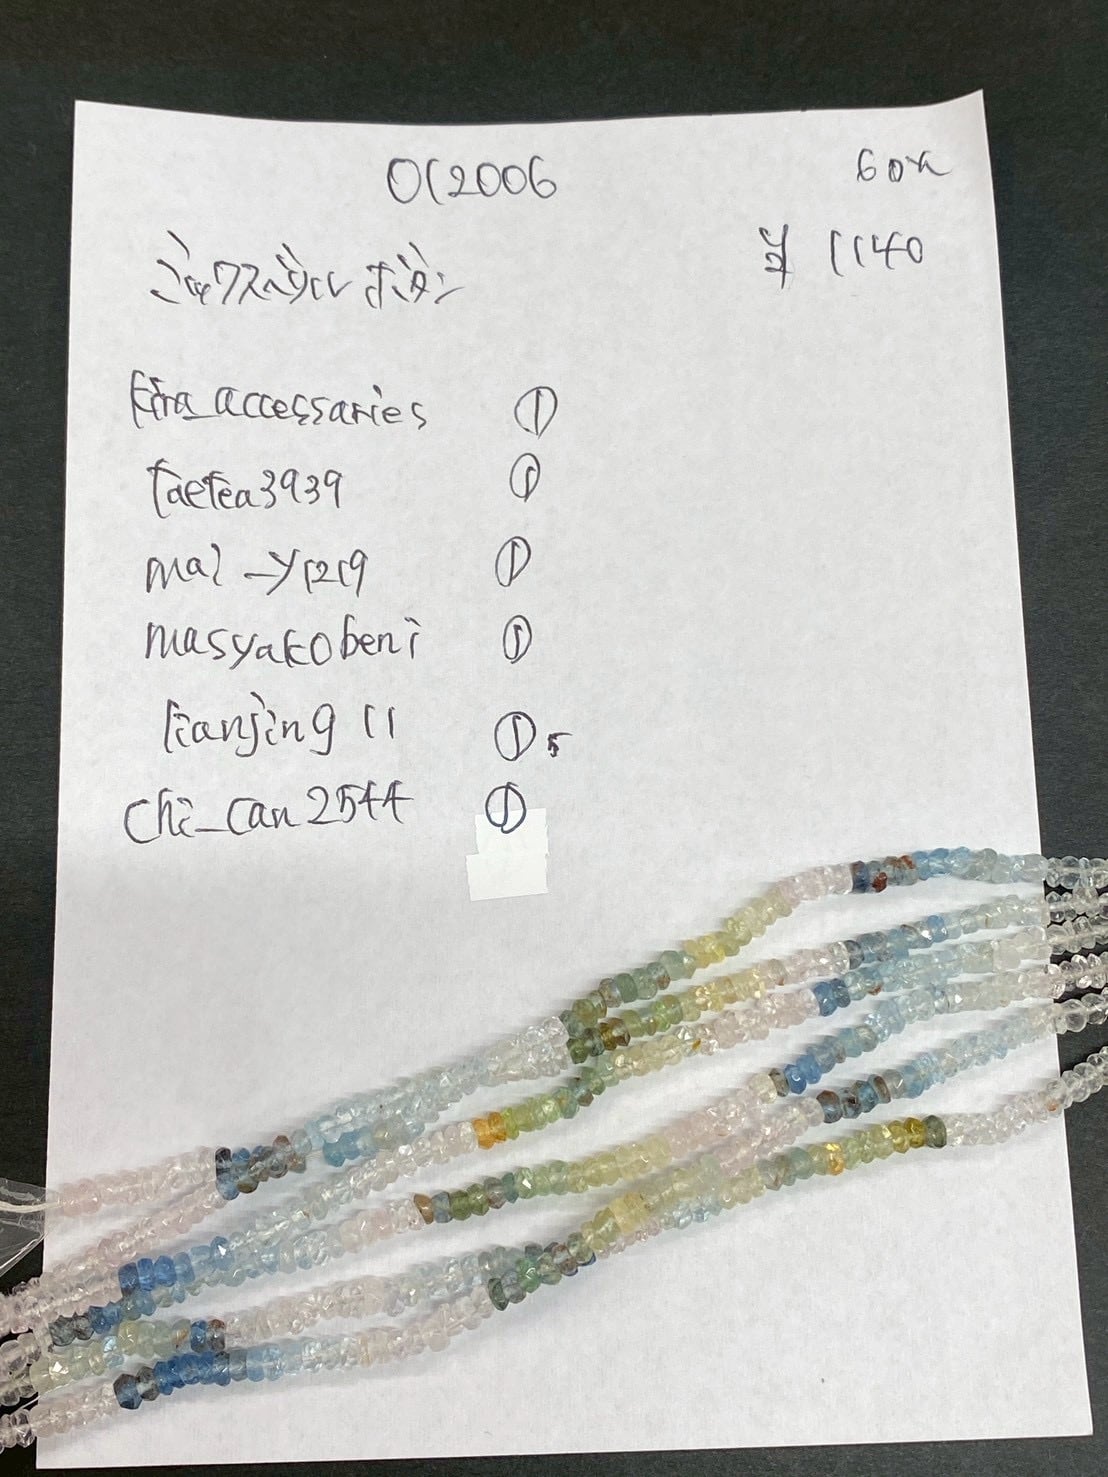 012006
60%
ミックスベリル ボタン
¥ 1140
kira_accessaries ①
taetea3939 ①
mai_y1219 ①
masyakobeni ①
tianjing 11 ① 5
chi_can2544 ①